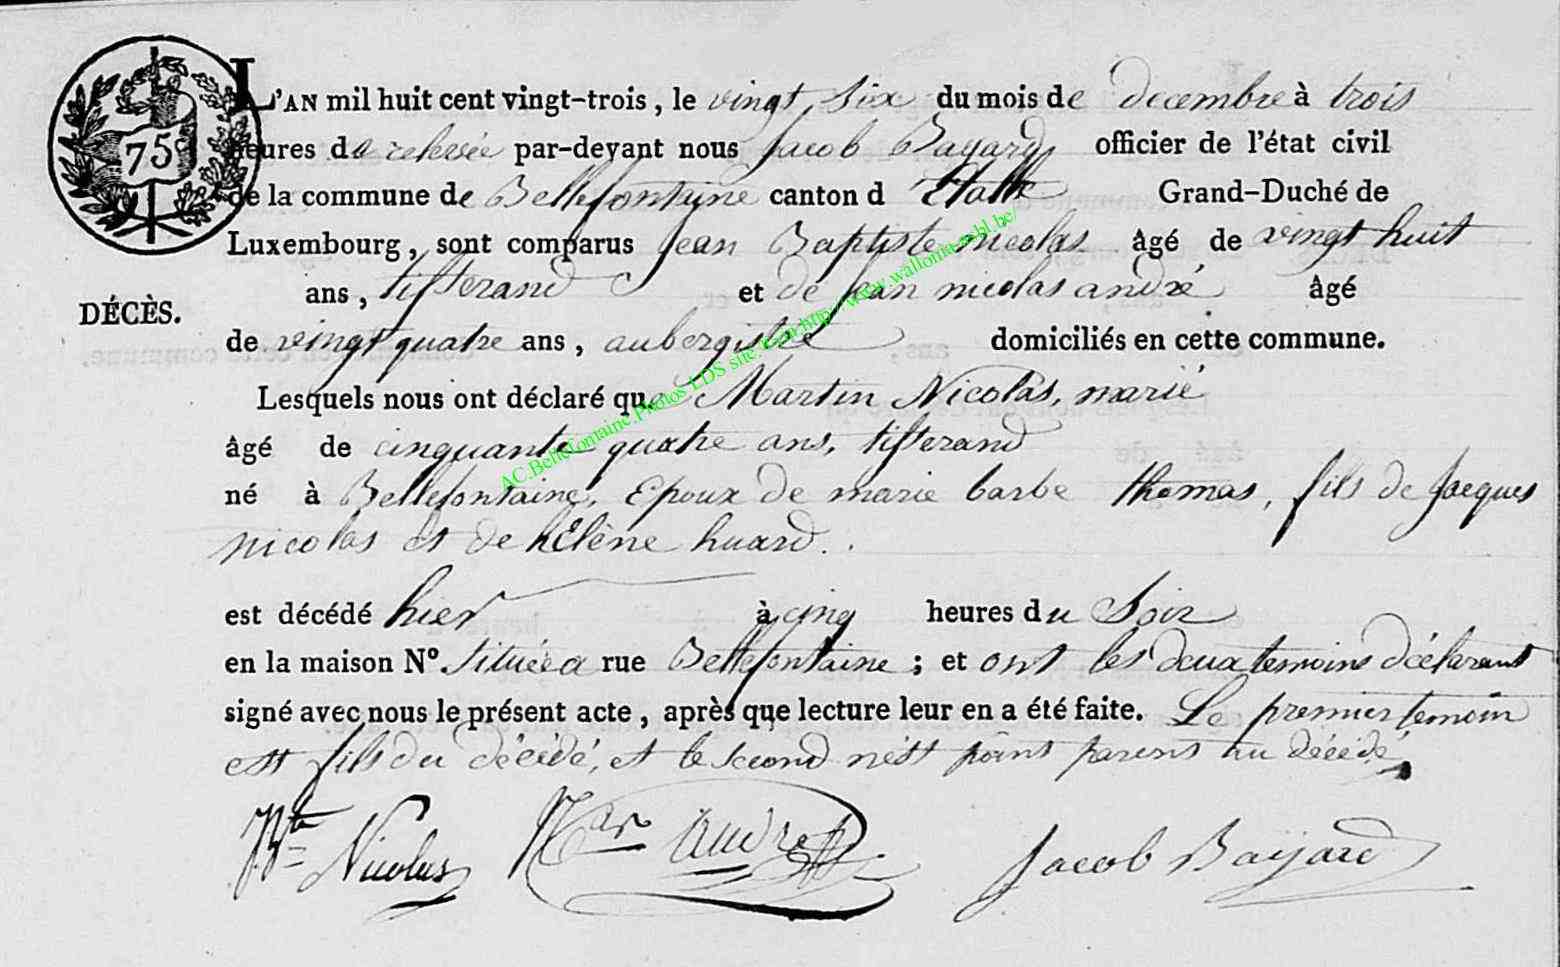 75 c
L'AN mil huit cent vingt-trois, le vingt six du mois de decembre à trois
heures de relevée par-devant nous Jacob Bayard officier de l'état civil
de la commune de Bellefontaine canton d'Etalle Grand-Duché de
Luxembourg, sont comparus Jean Baptiste nicolas âgé de vingt huit
ans, tisserand et de Jean nicolas andré âgé
DÉCÈS.
de vingt quatre ans, aubergiste domiciliés en cette commune.
Lesquels nous ont déclaré que Martin Nicolas, marié
âgé de cinquante quatre ans, tisserand
né à Bellefontaine, Epoux de marie barbe thomas, fils de Jacques
nicolas et de hélène huard.
est décédé hier à cinq heures du Soir
en la maison N° située a rue Bellefontaine; et ont les deux temoins déclarant
signé avec nous le présent acte, après que lecture leur en a été faite. Le premier temoin
est fils du décédé, et le second n'est point parens au décédé,
Bte Nicolas
Nas André
Jacob Baijard
AC.Bellefontaine.Photos LDS site: http://www.wallonica.bl.be/